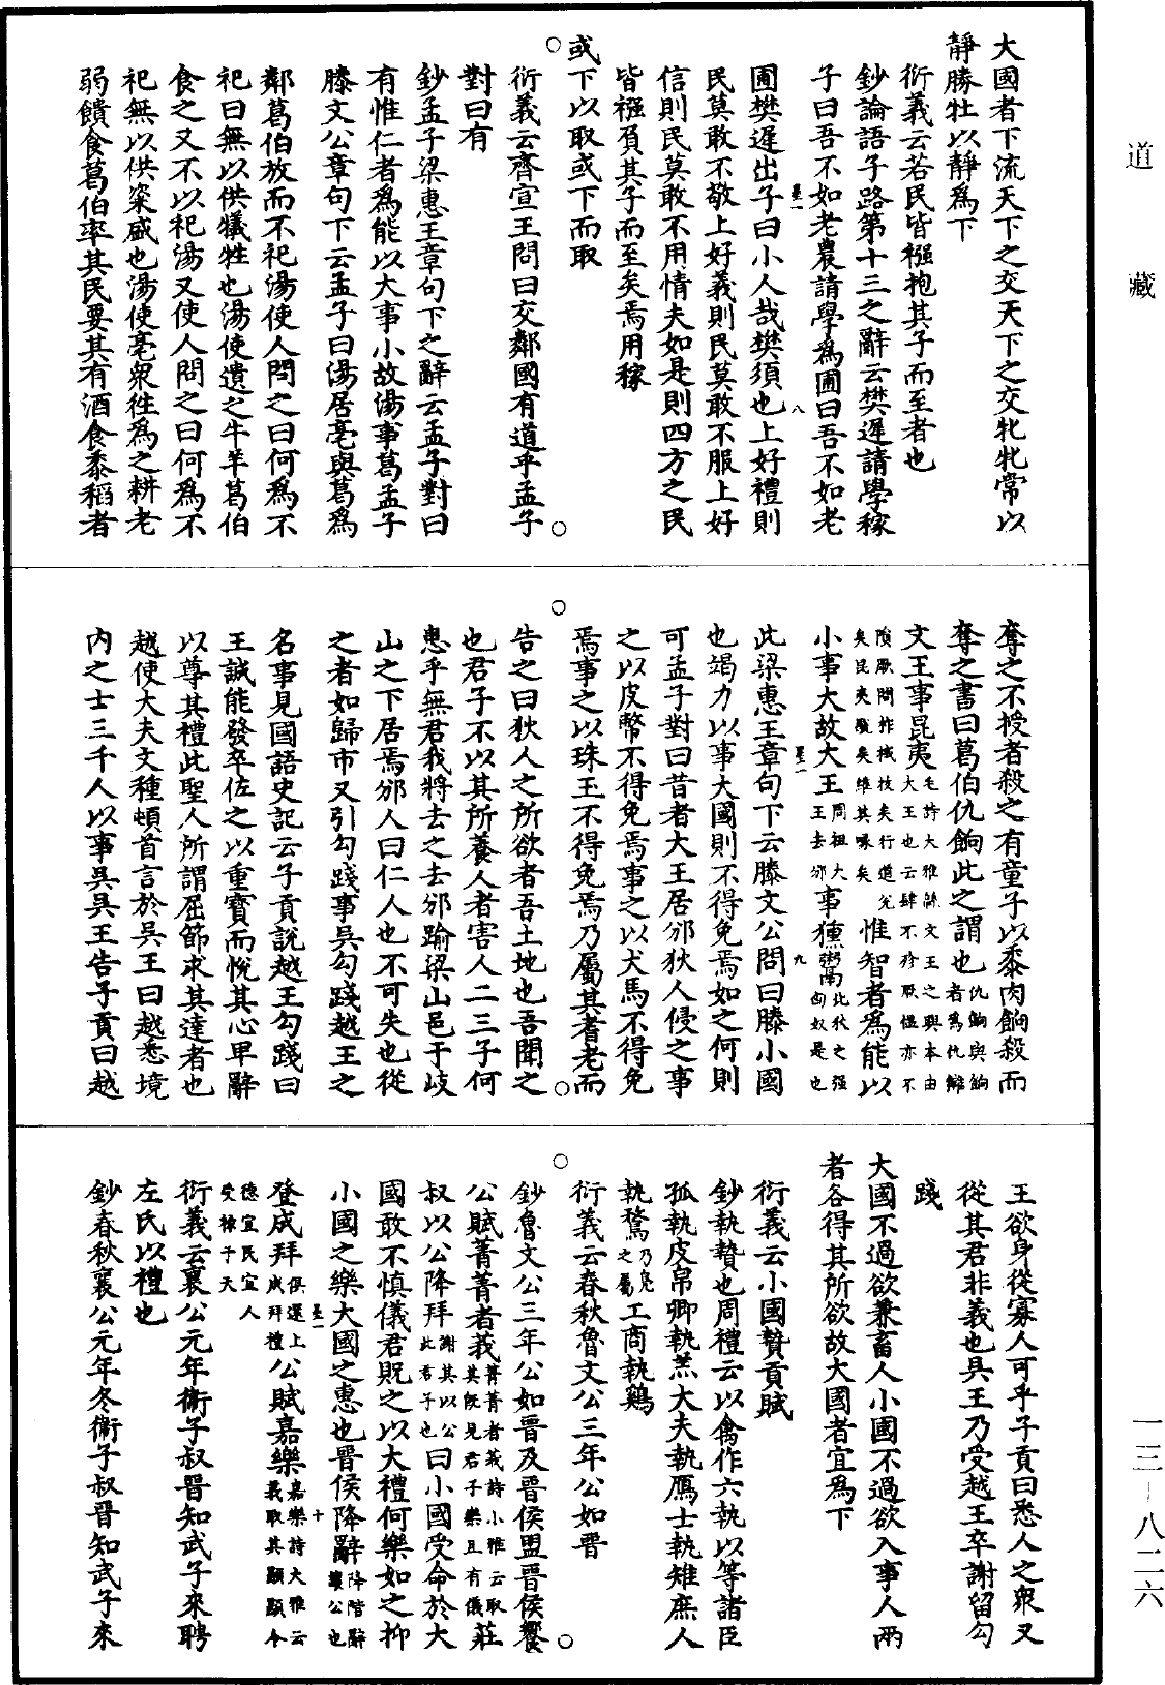 道藏
大國者下流天下之交天下之交牝牝常以
靜勝牡以靜爲下
衍義云若民皆襁抱其子而至者也
鈔論語子路第十三之辭云樊遲請學稼
子曰吾不如老農請學爲圃曰吾不如老
墨一
八
圃樊遲出子曰小人哉樊須也上好禮則
民莫敢不敬上好義則民莫敢不服上好
信則民莫敢不用情夫如是則四方之民
皆襁負其子而至矣焉用稼
或下以取或下而取
衍義云齊宣王問曰交鄰國有道乎孟子
對曰有
鈔孟子梁惠王章句下之辭云孟子對曰
有惟仁者爲能以大事小故湯事葛孟子
滕文公章句下云孟子曰湯居亳與葛爲
鄰葛伯放而不祀湯使人問之曰何爲不
祀曰無以供犧牲也湯使遺之牛羊葛伯
食之又不以祀湯又使人問之曰何爲不
祀無以供粢盛也湯使亳衆徃爲之耕老
弱饋食葛伯率其民要其有酒食黍稻者
奪之不授者殺之有童子以黍肉餉殺而
奪之書曰葛伯仇餉此之謂也仇餉與餉者爲仇讎
文王事昆夷毛詩大雅緜文王之興本由大王也云肆不殄厥慍亦不
隕厥問柞棫拔矣行道兌矣昆夷駾矣維其喙矣惟智者爲能以
小事大故大王周祖大王去邠事獯鬻北狄之强匈奴是也
墨一
九
此梁惠王章句下云滕文公問曰滕小國
也竭力以事大國則不得免焉如之何則
可孟子對曰昔者大王居邠狄人侵之事
之以皮幣不得免焉事之以犬馬不得免
焉事之以珠玉不得免焉乃屬其耆老而
告之曰狄人之所欲者吾土地也吾聞之
也君子不以其所養人者害人二三子何
患乎無君我將去之去邠踰梁山邑于岐
山之下居焉邠人曰仁人也不可失也從
之者如歸市又引勾踐事吳勾踐越王之
名事見國語史記云子貢說越王勾踐曰
王誠能發卒佐之以重寶而悅其心卑辭
以尊其禮此聖人所謂屈節求其達者也
越使大夫文種頓首言於吳王曰越悉境
內之士三千人以事吳吳王告子貢曰越
王欲身從寡人可乎子貢曰悉人之衆又
從其君非義也具王乃受越王卒謝留勾
踐
大國不過欲兼畜人小國不過欲入事人兩
者各得其所欲故大國者宜爲下
衍義云小國贄貢賦
鈔執贄也周禮云以禽作六執以等諸臣
孤執皮帛卿執羔大夫執鴈士執雉庶人
執鶩乃鳧之屬工商執鷄
衍義云春秋魯文公三年公如晉
鈔魯文公三年公如晉及晉侯盟晉侯饗
公賦菁菁者莪菁菁者莪詩小雅云取其旣見君子樂且有儀莊
叔以公降拜謝其以公比君子也曰小國受命於大
國敢不慎儀君貺之以大禮何樂如之抑
小國之樂大國之惠也晉侯降辭降階辭讓公也
墨一
十
登成拜俱還上成拜禮公賦嘉樂嘉樂詩大雅云義取其顯顯令
德宜民宜人受祿于天
衍義云襄公元年衛子叔晉知武子來聘
左氏以禮也
鈔春秋襄公元年冬衞子叔晉知武子來
一三-八二六